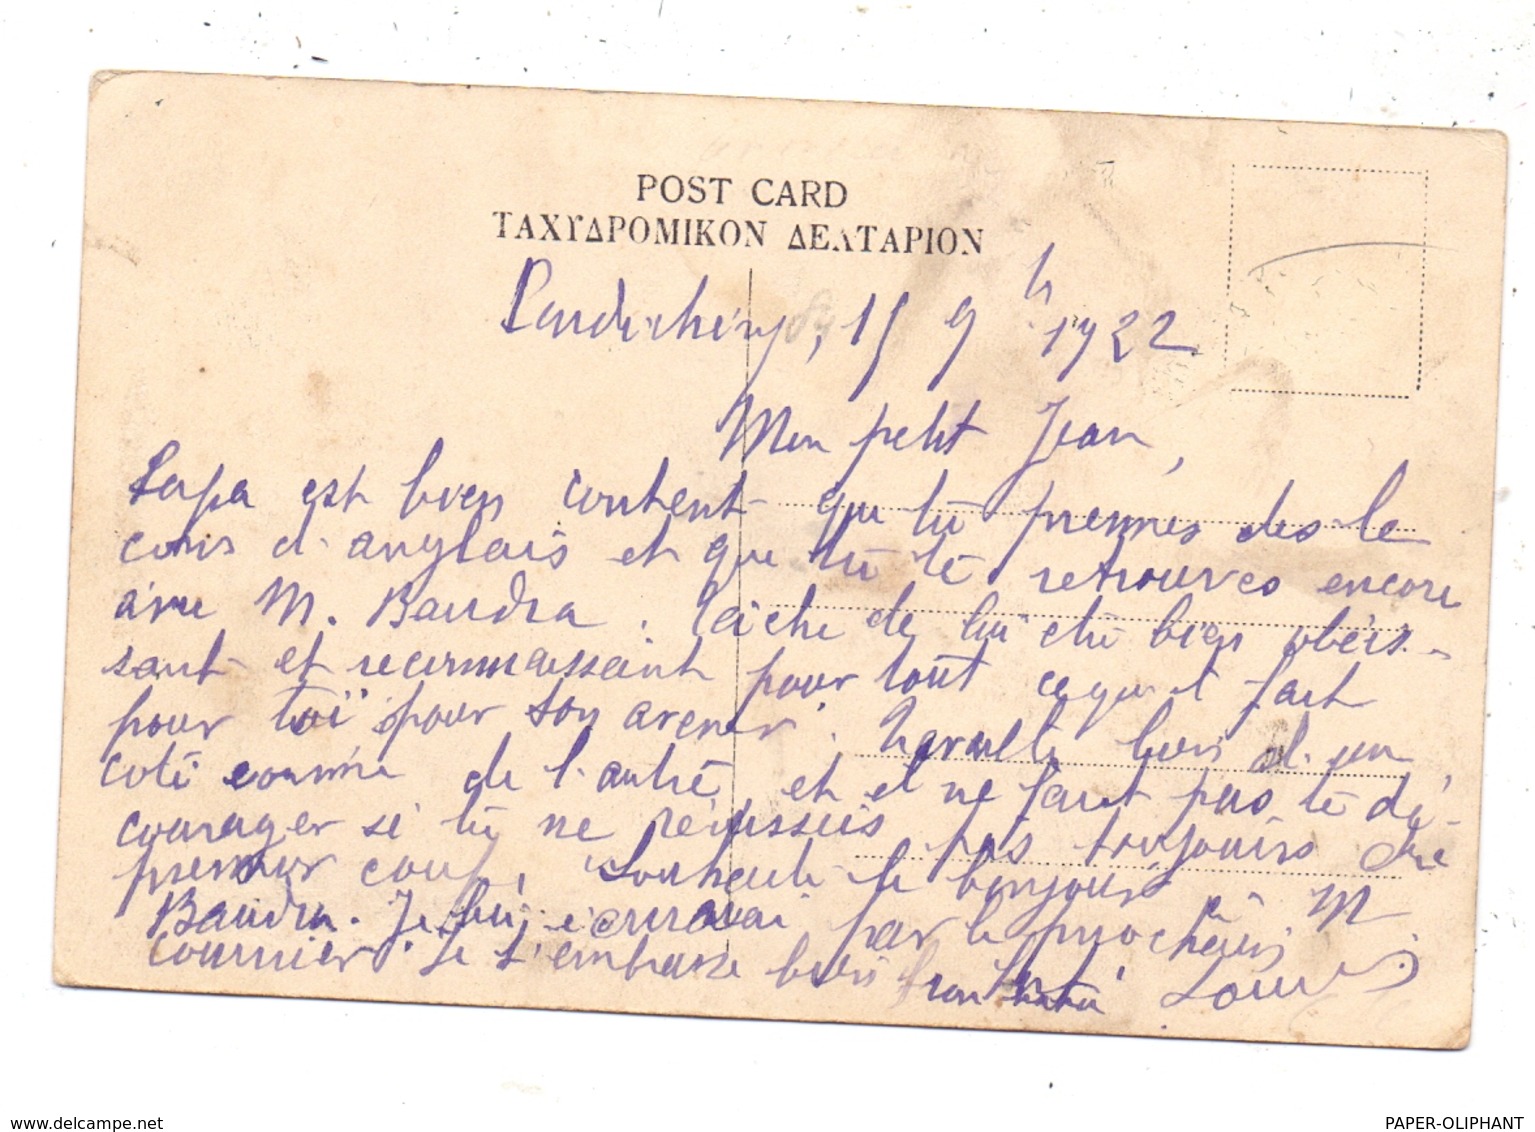 POST CARD
ΤΑΧΥΔΡΟΜΙΚΟΝ ΔΕΛΤΑΡΙΟΝ
Pondichéry, 15 9 h 1922
Mon petit Jean,
Papa est bien content que tu prennes des le
cons d'anglais et que tu te retrouves encore
avec M. Baudra. Tâche de lui être bien obéis-
sant et reconnaissant pour tout ce qu'il fait
pour toi pour ton avenir. Travaille bien d'un
coté comme de l'autre, et il ne faut pas te dé-
courager si tu ne réussis pas toujours du
premier coup. Souhaite le bonjour à M
Baudra. Je lui écrirai par le prochain
courrier. Je t'embrasse bien ton Louis
www.delcampe.net
PAPER-OLIPHANT